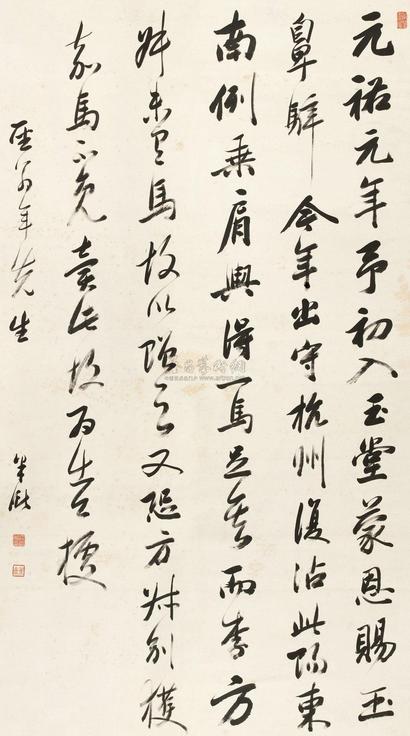 元祐元年予初入玉堂蒙恩賜玉
鼻騂今年出守杭州復沾此賜東
南例乘肩輿得一馬足矣而李方
叔未有馬故以贈之又恐方叔別獲
嘉馬不免賣此故為出公據
年先生